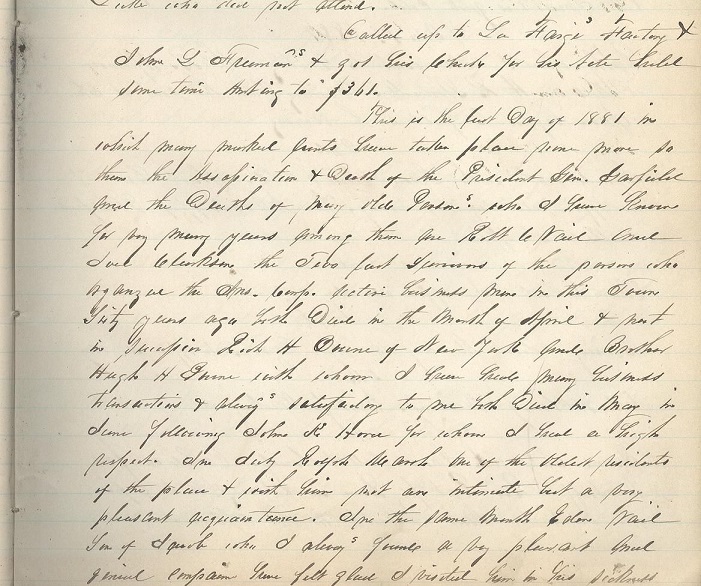 who did not attend.
Called up to La Farge's Factory &
John L Freeman's & got his Check for his Note held
some time Amting to $361.
This is the last Day of 1881 in
which many marked events have taken place none more so
than the Assassination & Death of the President Gen. Garfield
and the Deaths of many olde Persons who I have known
for very many years among them are Robt C Vail and
Joel Clarkson the Two last Survivors of the persons who
the Ins. Corp. active business men in this Town
Sixty years ago both Died in the Month of April & next
in succession Rich H Bowne of New York and Brother
Hugh H Bowne with whom I have had many business
transactions & always satisfactory to me both Died in May in
June following John R for whom I had a high
respect. In July Randolph Marsh one of the oldest residents
of the place & with him not an intimate but a very
pleasant acquaintance. In the same Month Edwin Vail
Son of who I always found a very pleasant and
genial companion have felt glad I visited him in his sickness